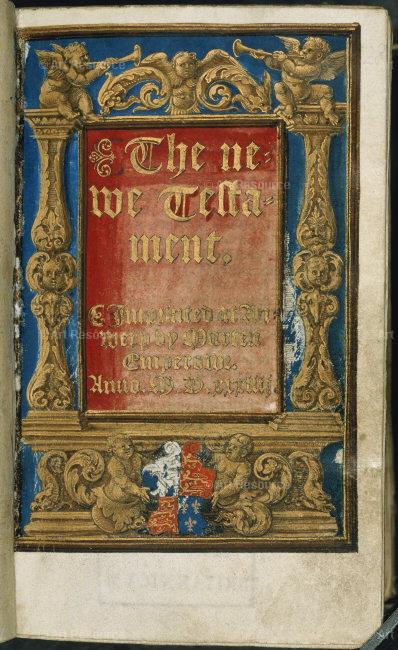 The ne-
we Testa-
ment.
Imprinted at An
werp by Marten
Emperowr.
Anno. M. D. xxxiiij.
Art Resource